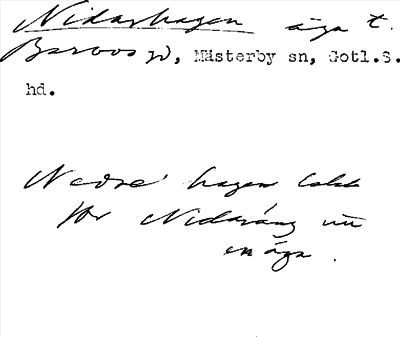 Nidarhagen äga t.
Barbos gd, Mästerby sn, Gotl.S.
hd.
Nedre hagen
Nidaräng nu
en äga.